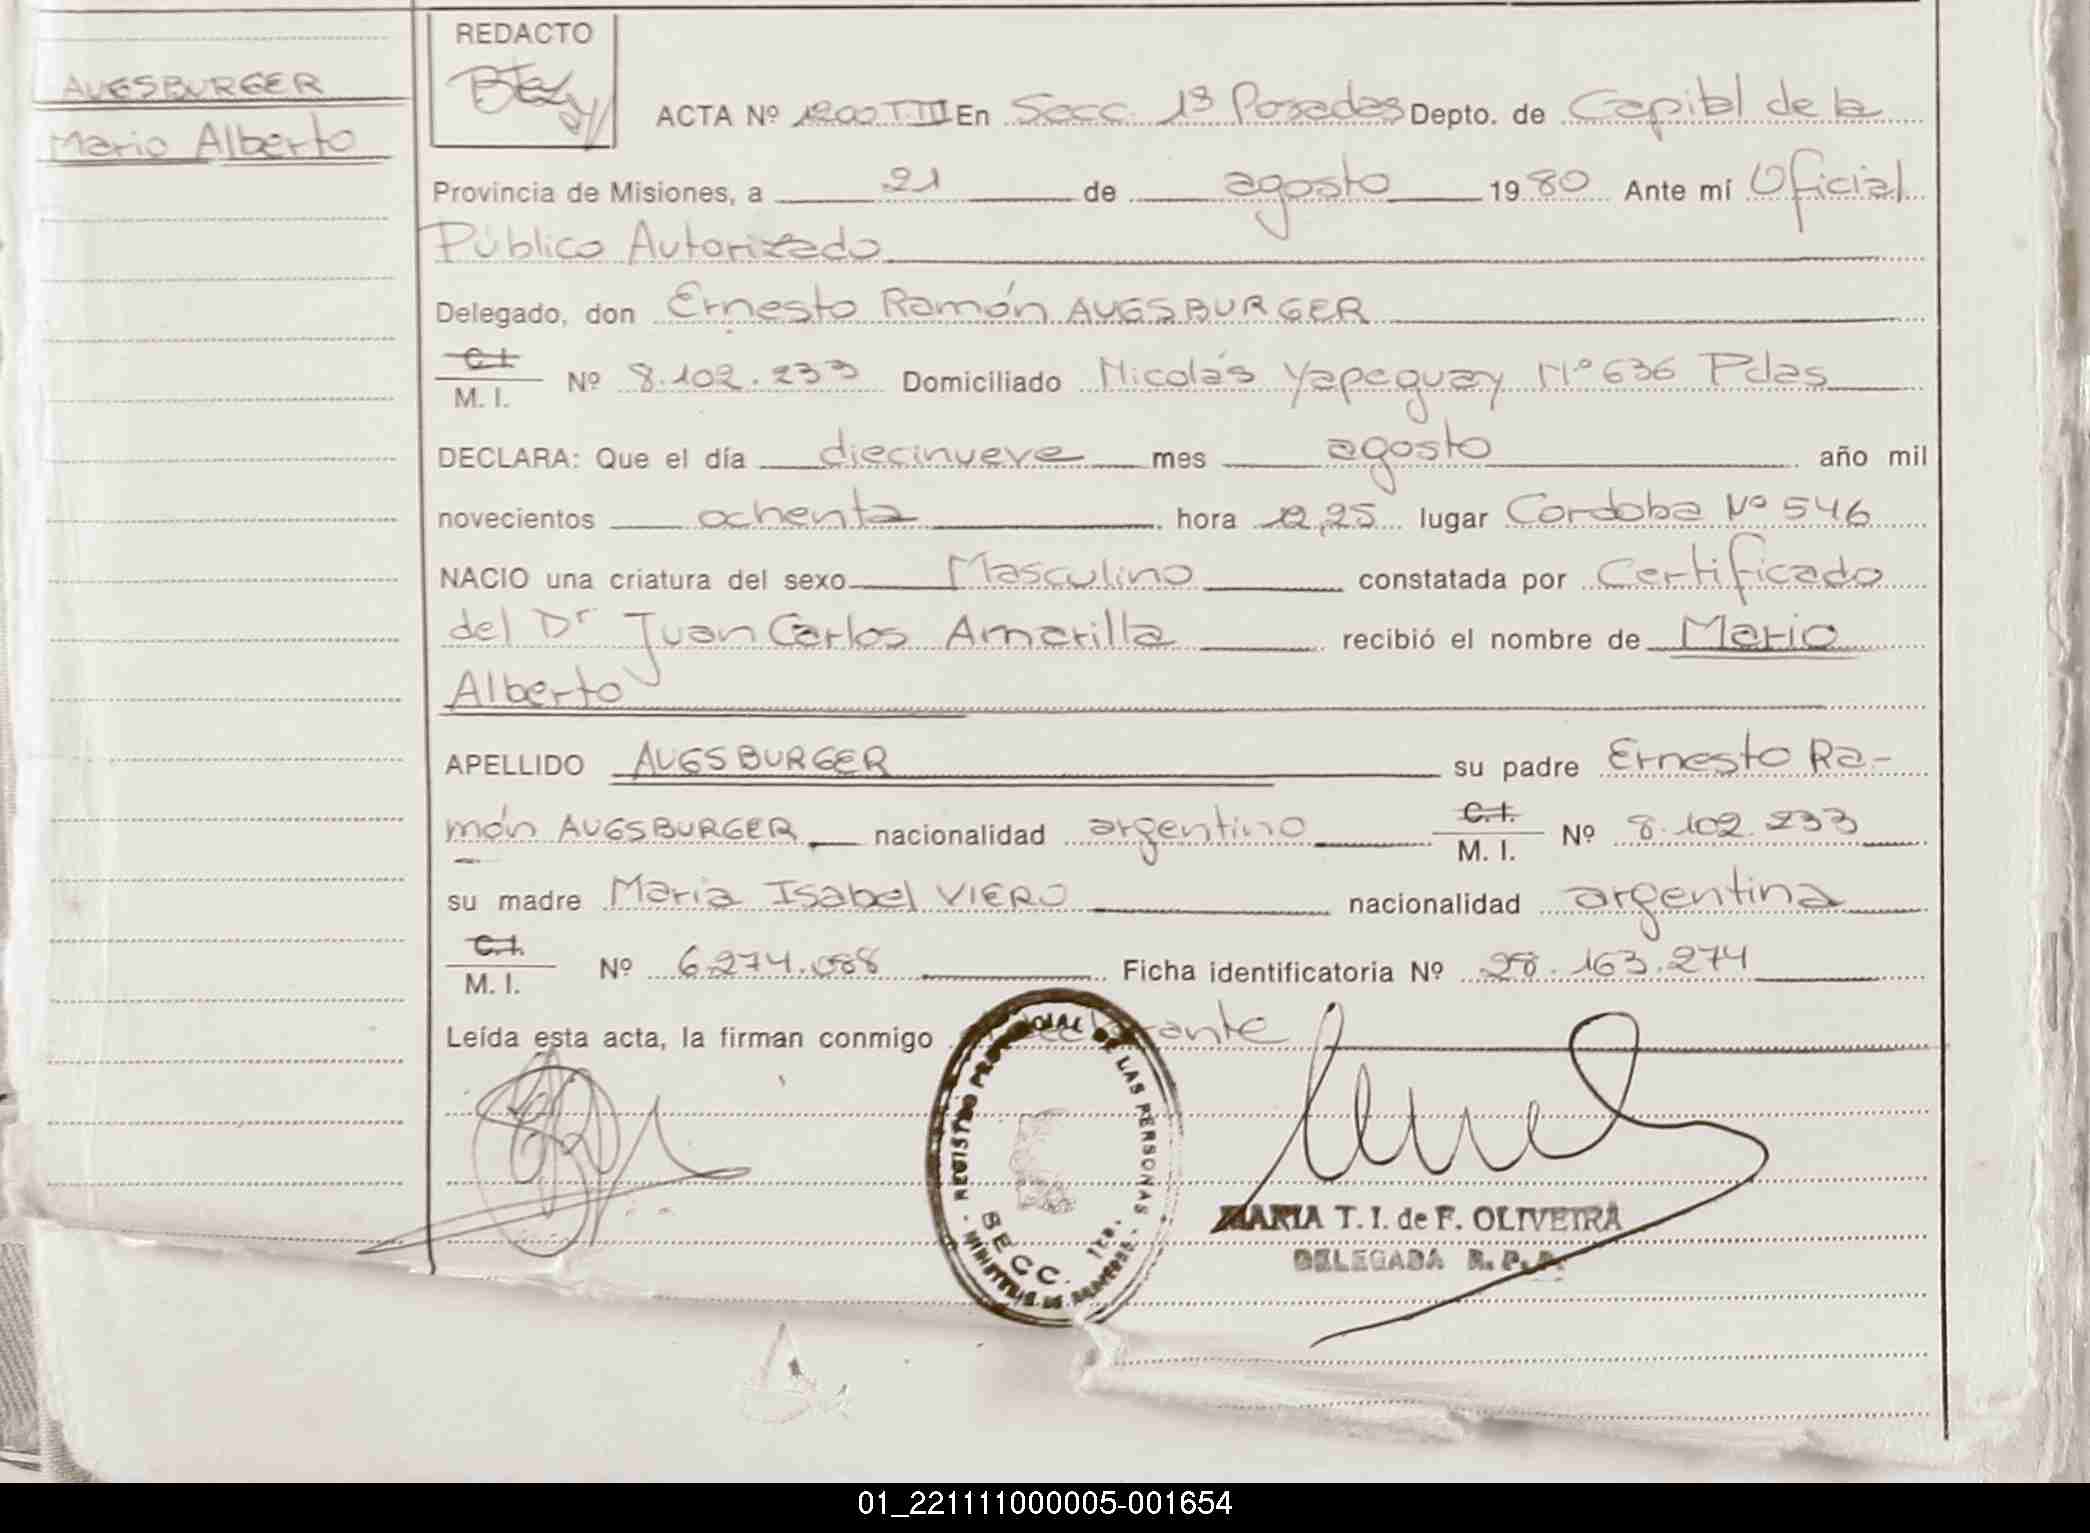 AUGSBURGER
Mario Alberto
REDACTO
ACTA Nº 1200 T.III En Secc. 1ª Posadas Depto. de Capital de la
Provincia de Misiones, a 21 de agosto 1980 Ante mí Oficial
Público Autorizado
Delegado, don Ernesto Ramón AUGSBURGER
C.I.
M. I. Nº 8.102.233 Domiciliado Nicolás Yapeguay Nº 636 Pdas
DECLARA: Que el día diecinueve mes agosto año mil
novecientos ochenta hora 12,25 lugar Cordoba Nº 546
NACIO una criatura del sexo Masculino constatada por Certificado
del Dr Juan Carlos Amarilla recibió el nombre de Mario
Alberto
APELLIDO AUGSBURGER su padre Ernesto Ra-
món AUGSBURGER nacionalidad argentino C.I. M. I. Nº 8.102.233
su madre Maria Isabel VIERO nacionalidad argentina
C.I.
M. I. Nº 6.274.088 Ficha identificatoria Nº 28.163.274
Leída esta acta, la firman conmigo declarante
REGISTRO PROVINCIAL DE LAS PERSONAS
SECC. 1ra.
MINISTERIO DE
MARIA T. I. de F. OLIVEIRA
DELEGADA R. P. P.
01_221111000005-001654